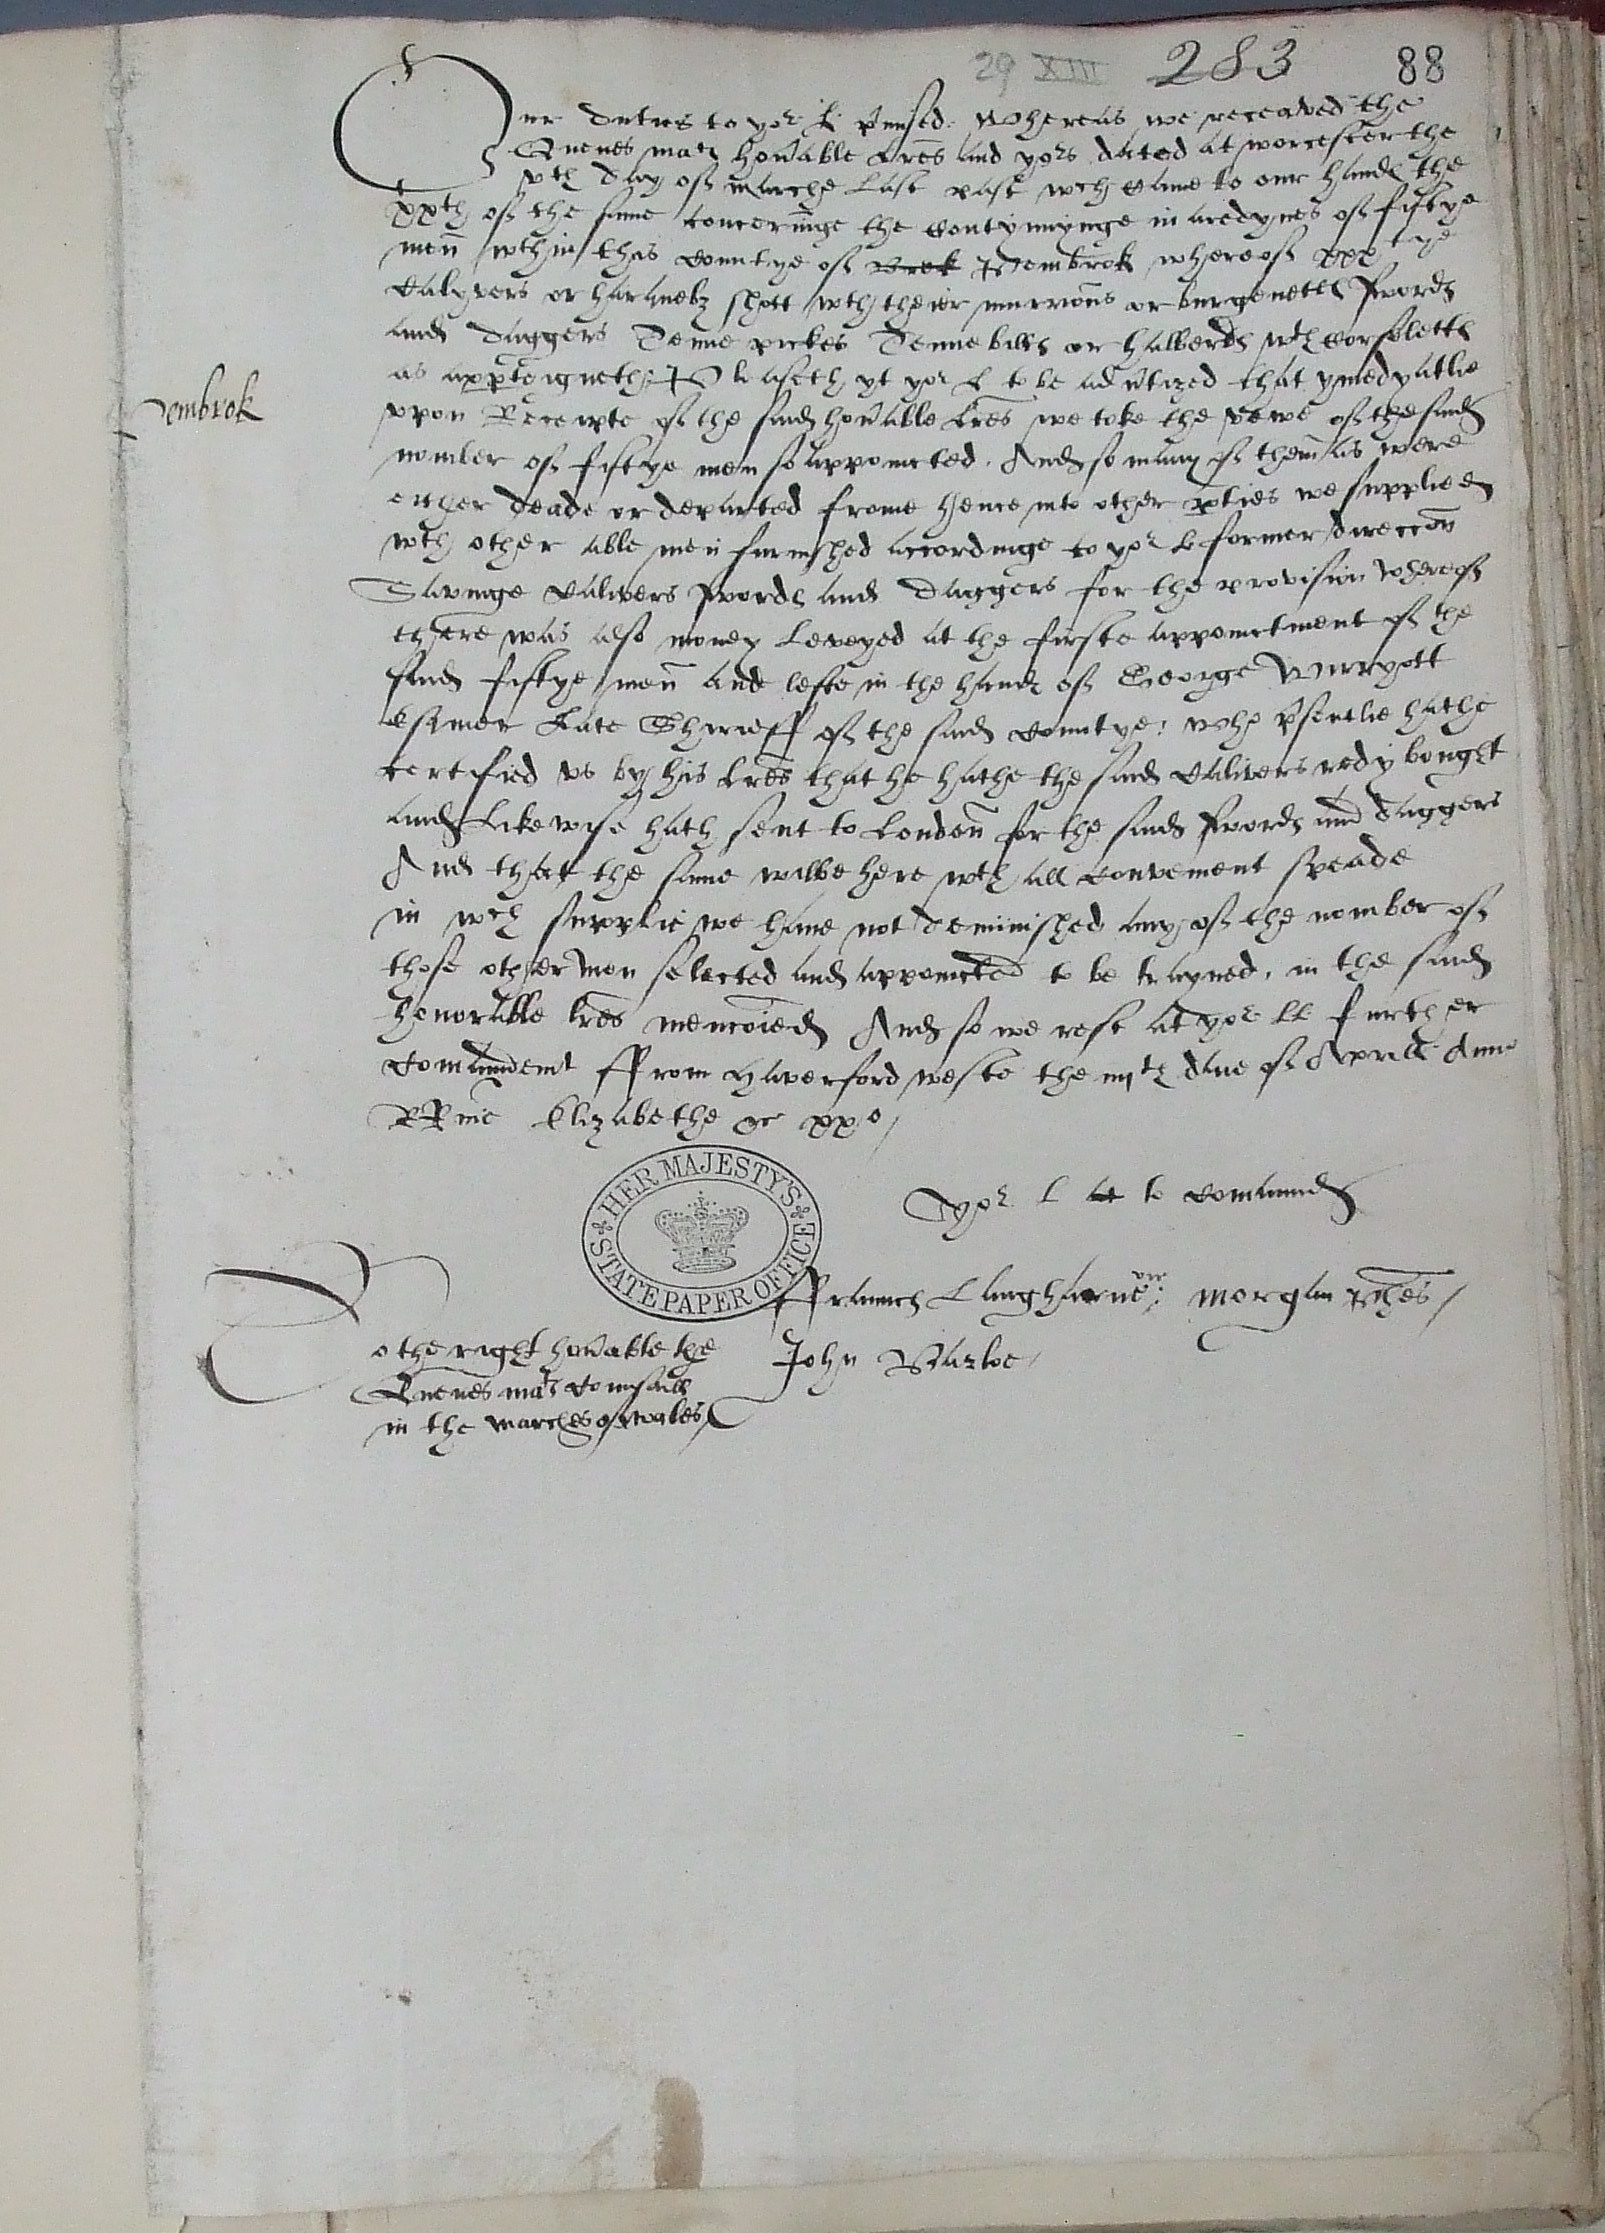 29 XIII 283 88
Our duties to yor L premised. Whereas we receaved the
Quenes mats honable lres and yors dated at worcester the
vth day of marche last past wch came to our hands the
xxth of the same concerninge the contynuynge in aredynes of fiftye
men wthin this countye of Brek Pembrok whereof xxxtye
Calyvers or harquebz shott wth theier murrions or burgenetts swords
and daggers Tenne pickes Tenne bills or halberds wth corseletts
as appteigneth: Pleaseth yt yor L to be advtized that ymedyatlie
Pembrok
vpon Receipte of the said honable lres we toke the vewe of the said
nomber of fiftye men so appointed. And so many of them as were
either deade or departed frome hence into other pties we supplied
wth other able men furnished accordinge to yor L former direccon
Savinge calivers swords and daggers for the provision whereof
there was also money leveyed at the firste appointment of the
said fiftye men and lefte in the hands of George Wirryott
esquier late Shirieff of the said countye: who psentlie hathe
certefied vs by his lres that he hathe the said calivers redy bought
and likewise hath sent to London for the said swords and daggers
And that the same wilbe here wth all convenient speade
in wch supplie we have not deminished any of the nomber of
those other men selected and appointed to be trayned, in the said
honorable lres mencioied And so we rest at yor LL further
comaundemt ffrom Haverford weste the iiijth daie of Aprill Anno
RRine Elizabethe &c xxo
Yor L at to comaund
ffraunch Laugharne, Morgan Phes
John Barloe
To the right honable the
Quenes mats counsaill
in the marches of wales
HER MAJESTY'S STATE PAPER OFFICE